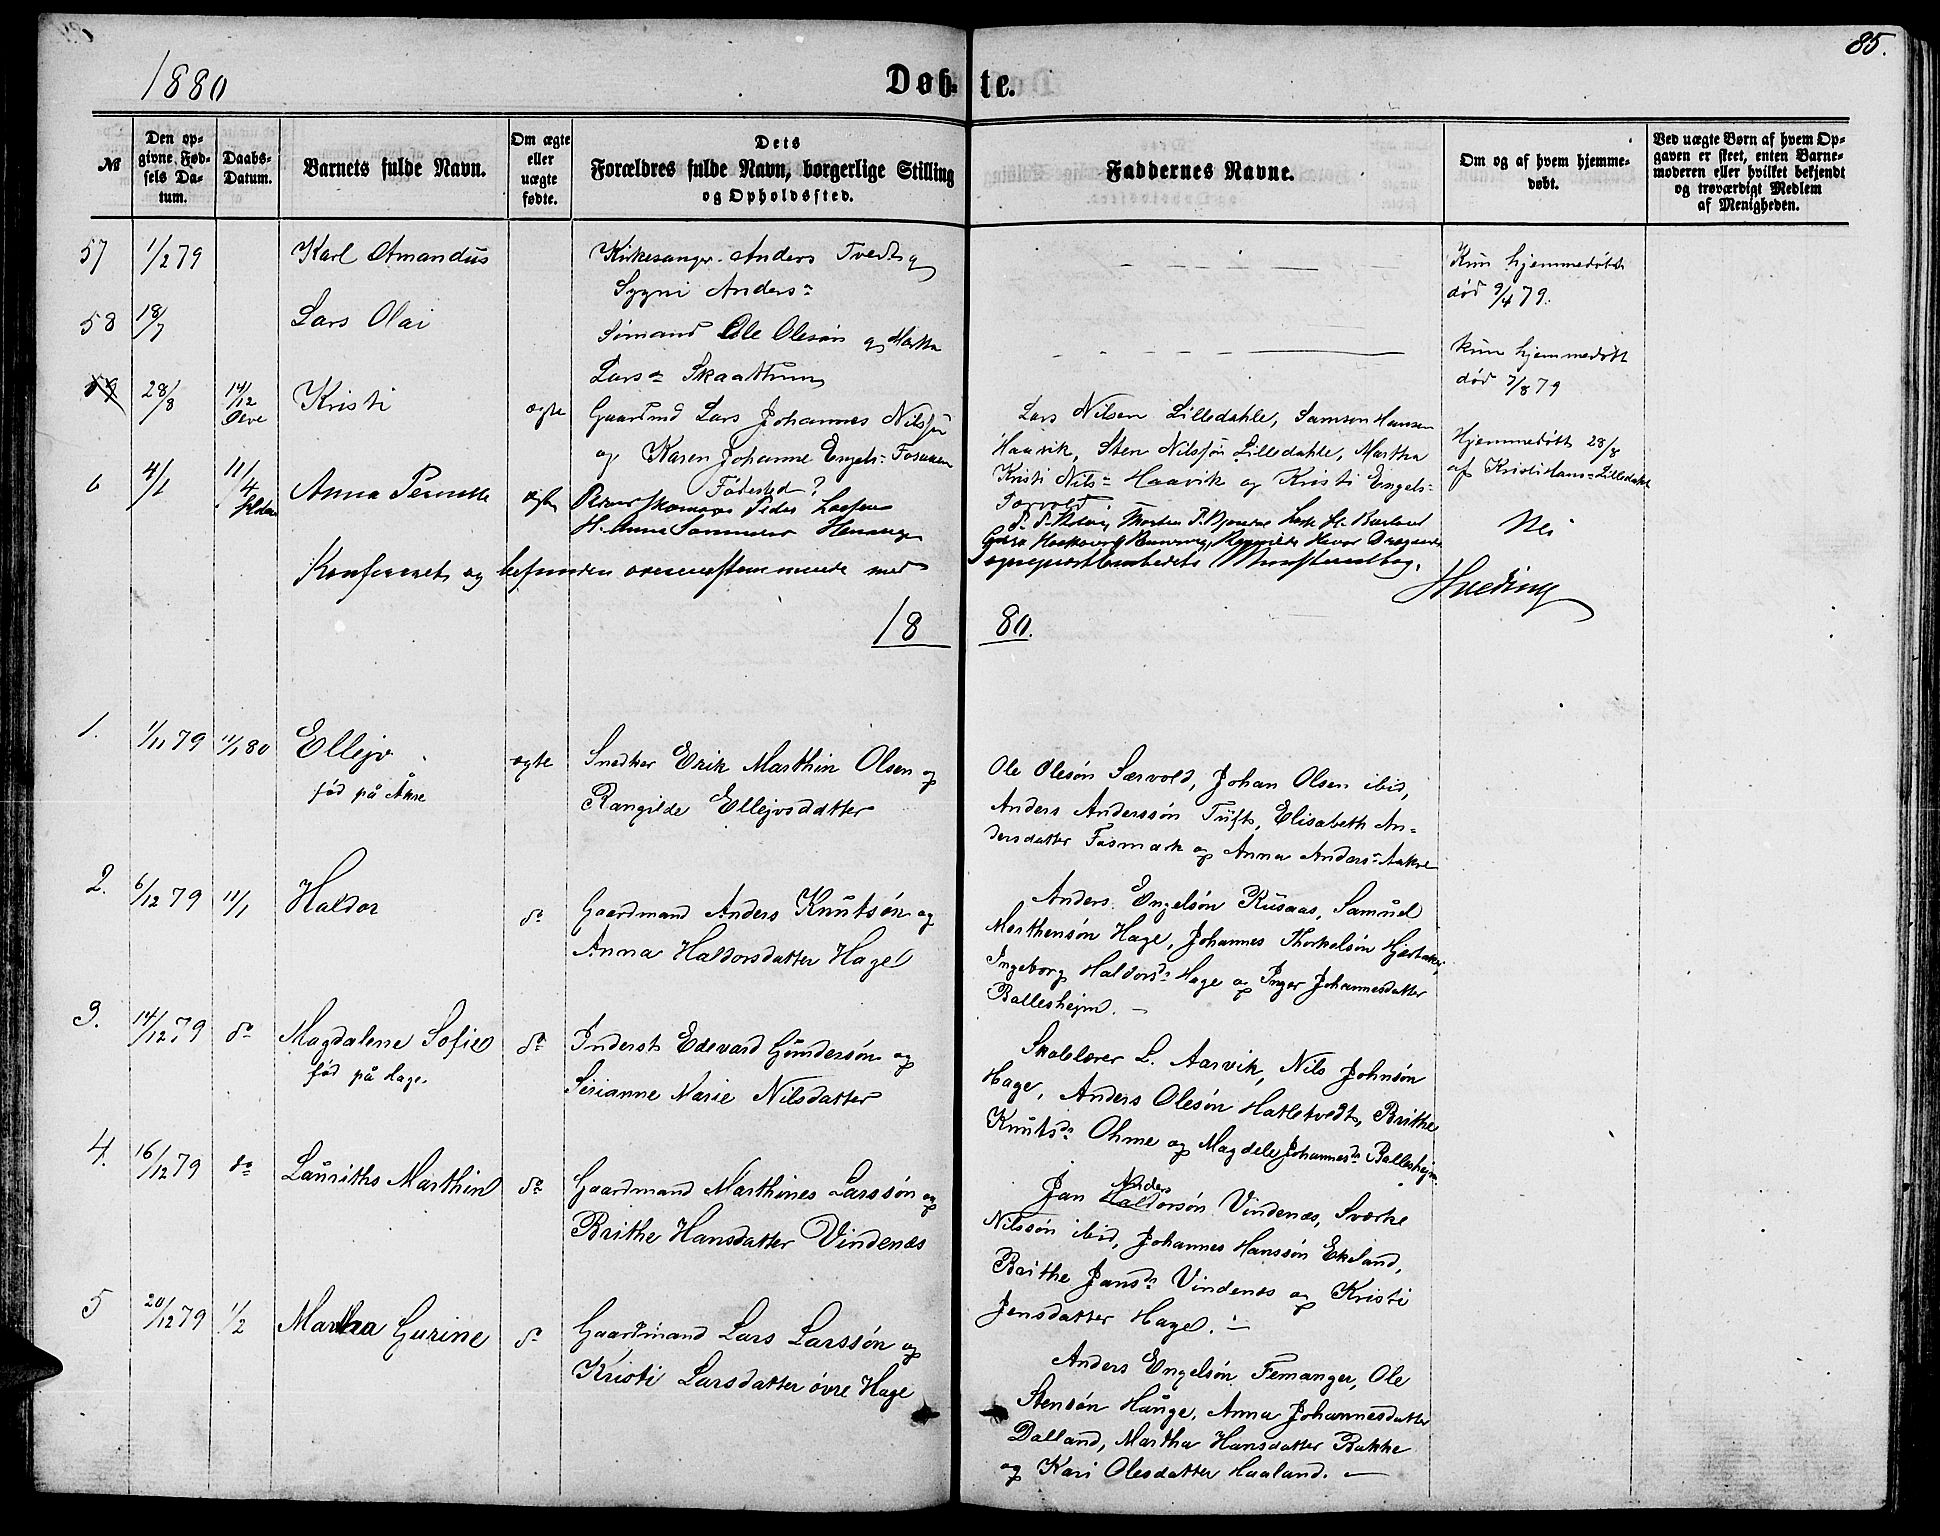 85.
1880
Døbte.
№
Den opgivne Fødsels Datum.
Daabs-Datum.
Barnets fulde Navn.
Om ægte eller uægte fødte.
Dets Forældres fulde Navn, borgerlige Stilling og Opholdssted.
Faddernes Navne.
Om og af hvem hjemmedøbt.
Ved uægte Børn af hvem Opgaven er skeet, enten Barnemoderen eller hvilket bekjendt og troværdigt Medlem af Menigheden.
57 1/2 79 Karl Amandus
Kirkesanger Anders Tvedt og
Sygni Anders
Kun hjemmedøbt
død 9/4 79.
58 18/7 Lars Olai
Sømand Ole Olesøn og Martha
Lars Skaathun
kun hjemmedøbt
død 7/8 79
59 28/8 14/12 Ølve Kristi ægte
Gaardmd Lars Johannes Nilssøn
og Karen Johanne Engels Fosanen
Lars Nilsen Lilledahle, Samson Hansen
Haavik, Sten Nilssøn Lilledahle, Martha
Kristi Nils Haavik og Kristi Engels
Hjemmedøbt 28/8
af Kristi Hans Lilledahle
6 4/1 11/4 Anna Pernille ægte
Fødested?
Peder Larsen
H. Anna
Nei
Konfereret og befunden overensstemmende med Sogneprestembedets Ministerialbog.
18 80.
1. 1/11 79 11/1 80 Ellejv ægte
fød på Åkre
Snedker Erik Marthin Olsen og
Rangilde Ellejvsdatter
Ole Olesøn Særvold, Johan Olsen ibid,
Anders Anderssøn Tufts, Elisabeth An-
dersdatter Fosmark og Anna Anders Aakre
2. 6/12 79 11/1 Haldor do
Gaardmand Anders Knutsøn og
Anna Haldorsdatter Hage
Anders Engelsøn Rusaas, Samuel
Marthensøn Hage, Johannes Thorkelsøn Hjertaker,
Ingeborg Haldorsd Hage og Inger Johannesdatter
Ballesheim.
3. 14/12 79 do Magdalene Sofie do
fød på Hage.
Inderst Edevard Gundersøn og
Sirianne Marie Nilsdatter
Skolelærer L. Aarvik, Nils Johnsøn
Hage, Anders Olesøn Hatletvedt, Brithe
Knutsd Ohme og Magdele Johannesd Ballesheim
4. 16/12 79 do Lauriths Marthin do
Gaardmand Marthines Larssøn og
Brithe Hansdatter Vindenæs
Anders
Jan Haldorsøn Vindenæs, Sværke
Nilssøn ibid, Johannes Hanssøn Ekeland,
Brithe Jansd Vindenæs og Kristi
Jensdatter Hage.
5 20/12 79 1/2 Martha Gurine do
Gaardmand Lars Larssøn og
Kristi Larsdatter øvre Hage
Anders Engelsøn Femanger, Ole
Stensøn Hauge, Anna Johannesdatter
Dalland, Martha Hansdatter Bakke
og Kari Olesdatter Haaland.